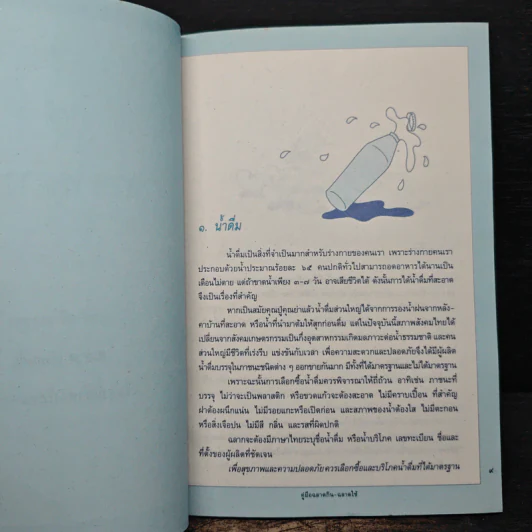 ๑. น้ำดื่ม
น้ำดื่มเป็นสิ่งที่จำเป็นมากสำหรับร่างกายของคนเรา เพราะร่างกายคนเรา
ประกอบด้วยน้ำประมาณร้อยละ ๖๕ คนปกติทั่วไปสามารถอดอาหารได้นานเป็น
เดือนไม่ตาย แต่ถ้าขาดน้ำเพียง ๓-๗ วัน อาจเสียชีวิตได้ ดังนั้นการได้น้ำดื่มที่สะอาด
จึงเป็นเรื่องที่สำคัญ
หากเป็นสมัยคุณปู่คุณย่าแล้วน้ำดื่มส่วนใหญ่ได้จากการรองน้ำฝนจากหลัง-
คาบ้านที่สะอาด หรือน้ำที่นำมาต้มให้สุกก่อนดื่ม แต่ในปัจจุบันนี้สภาพสังคมไทยได้
เปลี่ยนจากสังคมเกษตรกรรมเป็นกึ่งอุตสาหกรรมเกิดมลภาวะต่อน้ำธรรมชาติ และคน
ส่วนใหญ่มีชีวิตที่เร่งรีบ แข่งขันกับเวลา เพื่อความสะดวกและปลอดภัยจึงได้มีผู้ผลิต
น้ำดื่มบรรจุในภาชนะชนิดต่าง ๆ ออกขายกันมาก มีทั้งที่ได้มาตรฐานและไม่ได้มาตรฐาน
เพราะฉะนั้นการเลือกซื้อน้ำดื่มควรพิจารณาให้ถี่ถ้วน อาทิเช่น ภาชนะที่
บรรจุ ไม่ว่าจะเป็นพลาสติก หรือขวดแก้วจะต้องสะอาด ไม่มีคราบเปื้อน ที่สำคัญ
ฝาต้องผนึกแน่น ไม่มีรอยแกะหรือเปิดก่อน และสภาพของน้ำต้องใส ไม่มีตะกอน
หรือสิ่งเจือปน ไม่มีสี กลิ่น และรสที่ผิดปกติ
ฉลากจะต้องมีภาษาไทยระบุชื่อน้ำดื่ม หรือน้ำบริโภค เลขทะเบียน ชื่อและ
ที่ตั้งของผู้ผลิตที่ชัดเจน
เพื่อสุขภาพและความปลอดภัย ควรเลือกซื้อและบริโภคน้ำดื่มที่ได้มาตรฐาน
คู่มือฉลาดกิน-ฉลาดใช้